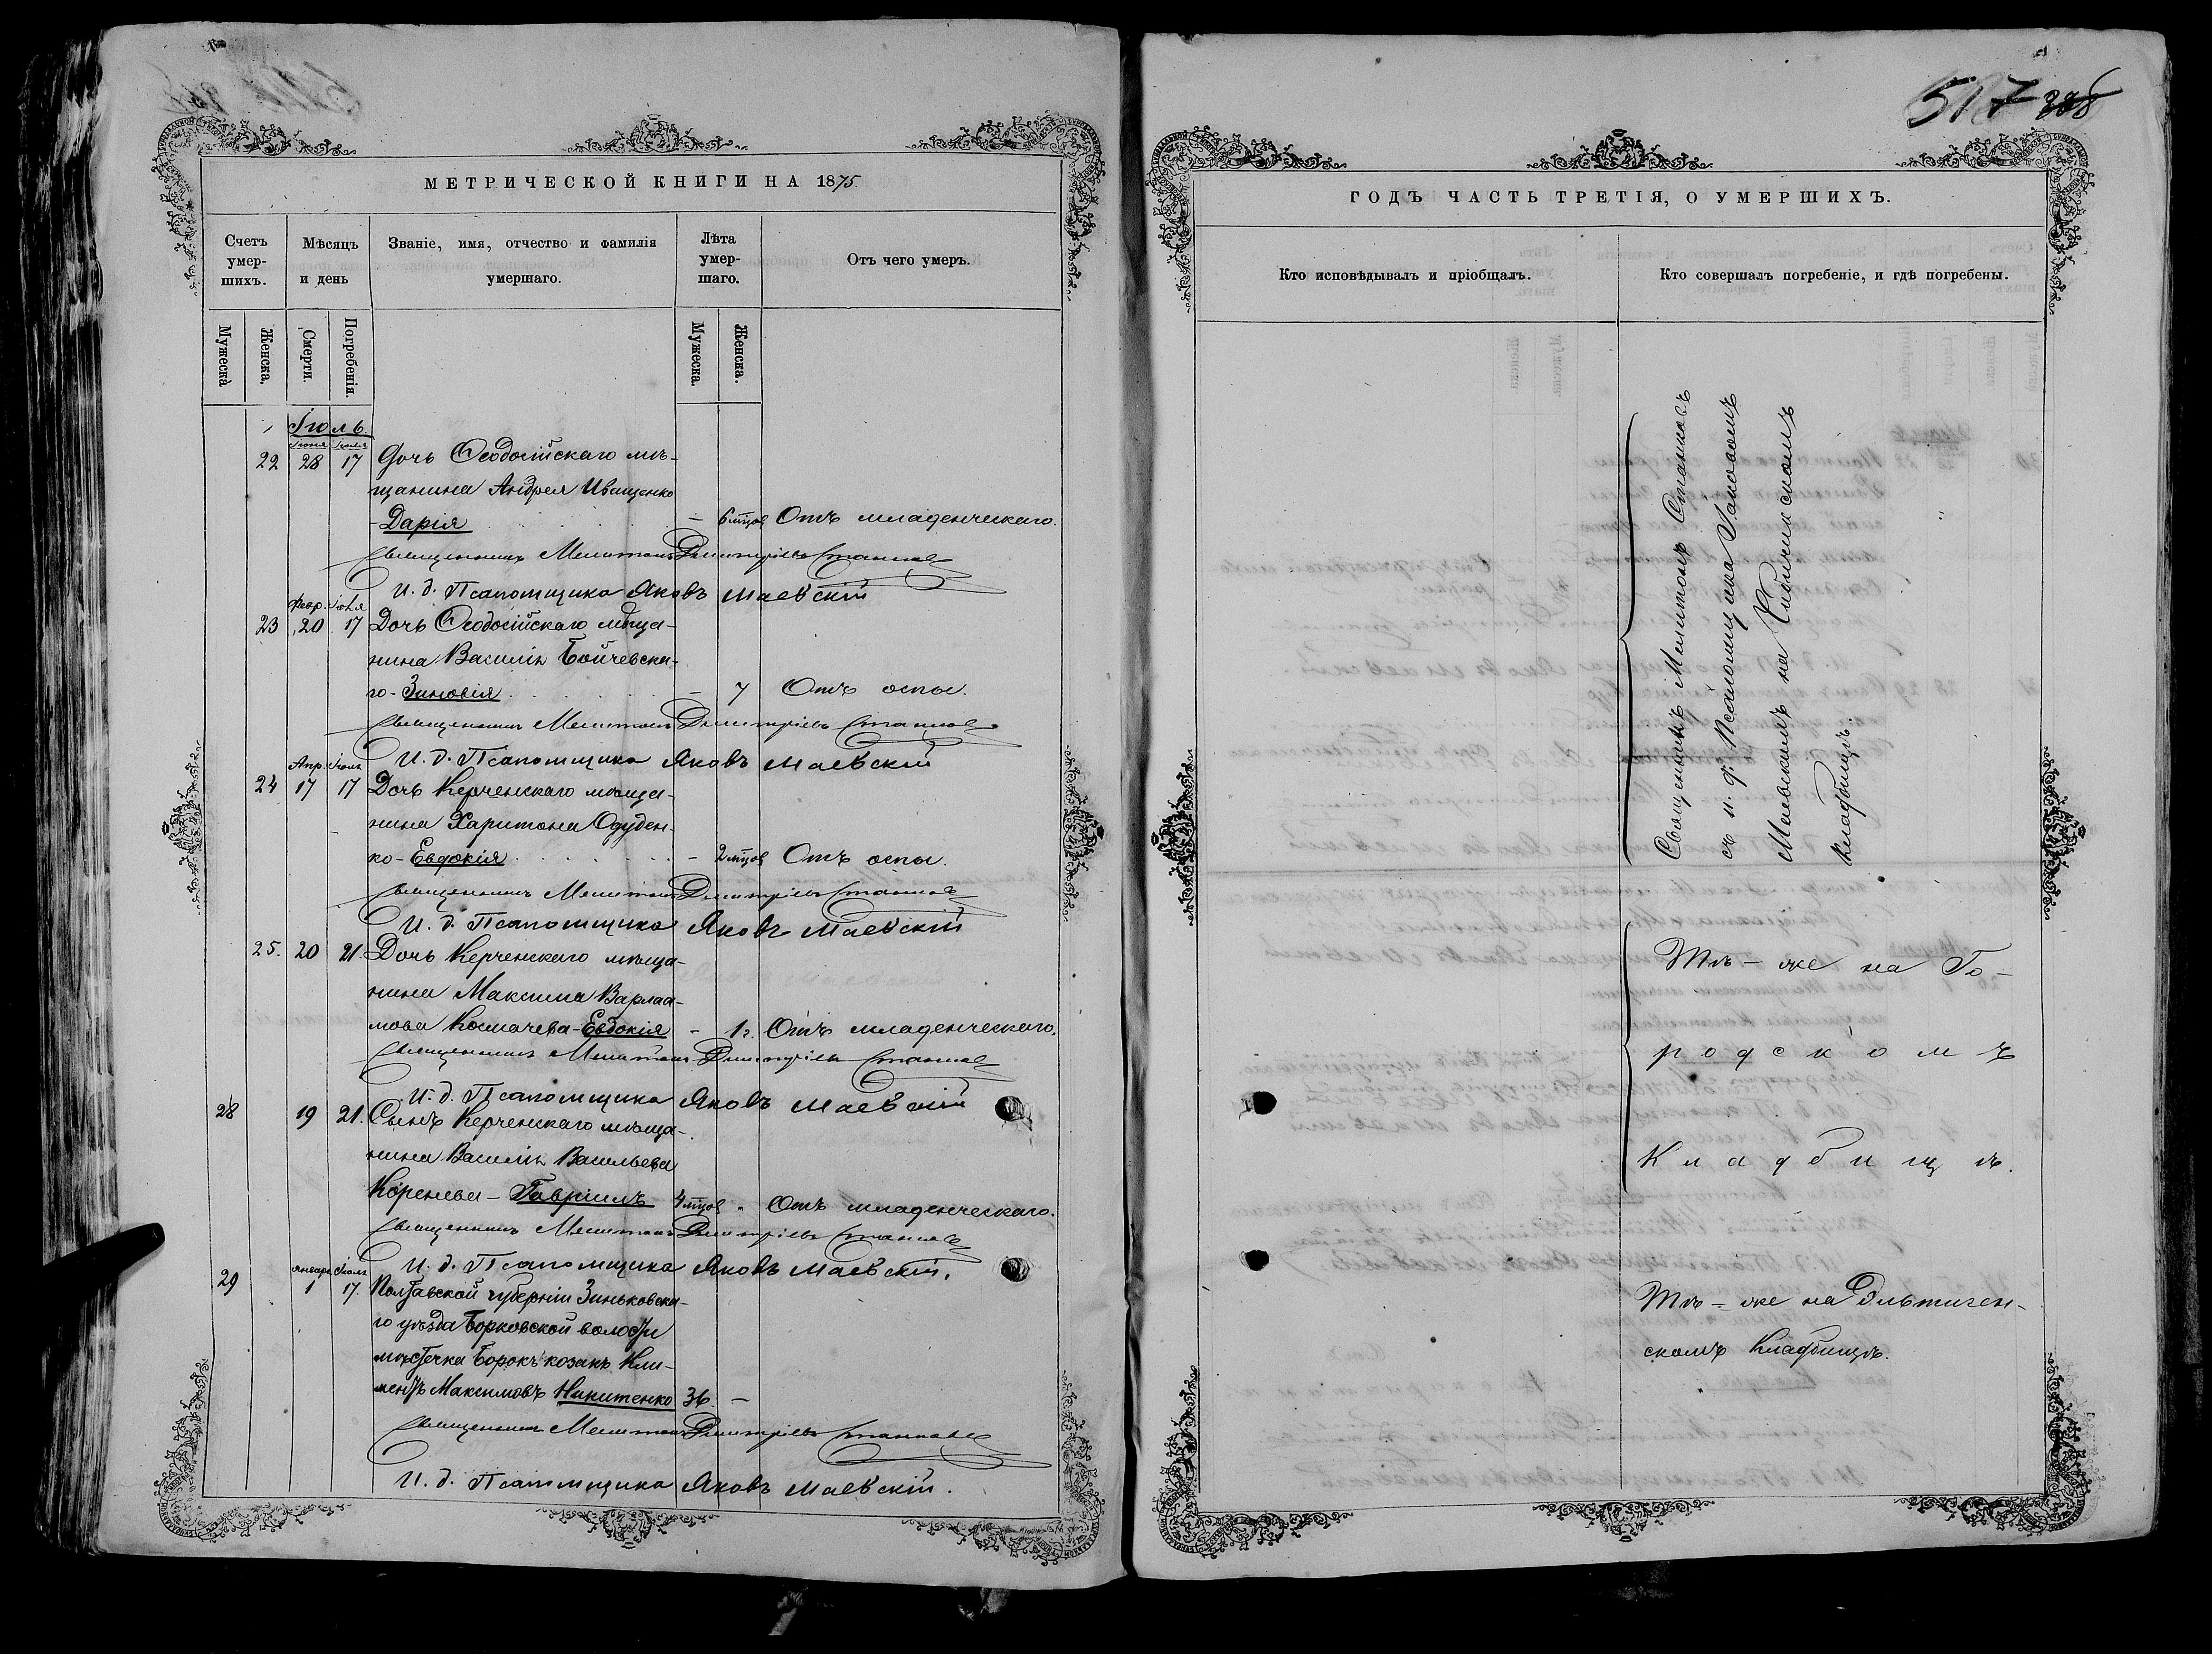 МЕТРИЧЕСКОЙ КНИГИ НА 1875.
Счетъ умер- шихъ.
Мѣсяцъ и день
Званіе, имя, отчество и фамилія умершаго.
Лѣта умер- шаго.
Отъ чего умеръ.
Мужеска
Женска.
Смерти.
Погребенія.
Мужеска.
Женска.
Іюль.
Іюня Іюля
22 28 17 Дочь Ѳеодосійскаго мѣ-
щанина Андрея Иващенко
- Дарія - 6 мцов Отъ младенческаго.
Священникъ Мелитонъ Димитріевъ Станковъ
И. д. Псаломщика Яковъ Маевскій
Февр. Іюля
23 20 17 Дочь Ѳеодосійскаго мѣща-
нина Василія Бойчевска-
го - Зиновія - 7 Отъ оспы.
Священникъ Мелитонъ Димитріевъ Станковъ
И. д. Псаломщика Яковъ Маевскій
Апр. Іюля
24 17 17 Дочь Керченскаго мѣща-
нина Харитона Одуден-
ко - Евдокія - 2 мцов Отъ оспы.
Священникъ Мелитонъ Димитріевъ Станковъ
И. д. Псаломщика Яковъ Маевскій
25. 20 21. Дочь Керченскаго мѣща-
нина Максима Варлаа-
мова Космачева - Евдокія - 1 г. Отъ младенческаго.
Священникъ Мелитонъ Димитріевъ Станковъ
И. д. Псаломщика Яковъ Маевскій
28 19 21. Сынъ Керченскаго мѣща-
нина Василія Васильева
Коренева - Гавріилъ 4 мцов " Отъ младенческаго.
Священникъ Мелитонъ Димитріевъ Станковъ
И. д. Псаломщика Яковъ Маевскій.
Январь Іюля
29 1 17. Полтавской губерніи Зиньковска-
го уѣзда Борковской волости
мѣстечка Борокъ козакъ Кли-
ментъ Максимовъ Никитенко 36. -
Священникъ Мелитонъ Димитріевъ Станковъ
И. д. Псаломщика Яковъ Маевскій.
517 
ГОДЪ ЧАСТЬ ТРЕТІЯ, О УМЕРШИХЪ.
Кто исповѣдывалъ и пріобщалъ.
Кто совершалъ погребеніе, и гдѣ погребены.
Священникъ Мелитонъ Станковъ
съ и. д. Псаломщика Яковомъ
Маевскимъ на
кладбищѣ.
Тѣ-же на Го-
родскомъ
Кладбищѣ.
Тѣ-же на Эльтиген-
скомъ Кладбищѣ.